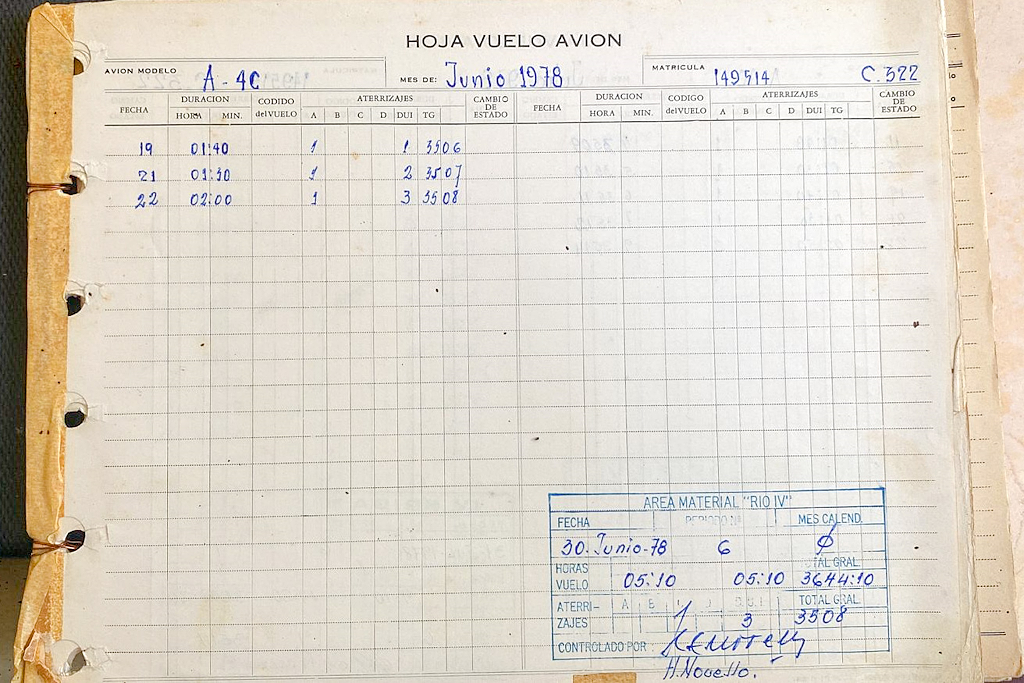 HOJA VUELO AVION
AVION MODELO A-4C MES DE: Junio 1978 MATRICULA 149514 C.322
FECHA DURACION CODIDO del VUELO ATERRIZAJES CAMBIO DE ESTADO FECHA DURACION CODIGO del VUELO ATERRIZAJES CAMBIO DE ESTADO
HORA MIN. A B C D DUI TG HORA MIN. A B C D DUI TG
19 01:40 1 1 3506
21 01:30 1 2 3507
22 02:00 1 3 3508
AREA MATERIAL "RIO IV"
FECHA PERIODO Nº MES CALEND.
30. Junio-78 6 ϕ
HORAS VUELO 05:10 05:10 TOTAL GRAL. 3644:10
ATERRI-ZAJES A B 1 3 TOTAL GRAL. 3508
CONTROLADO POR
H. Novello.